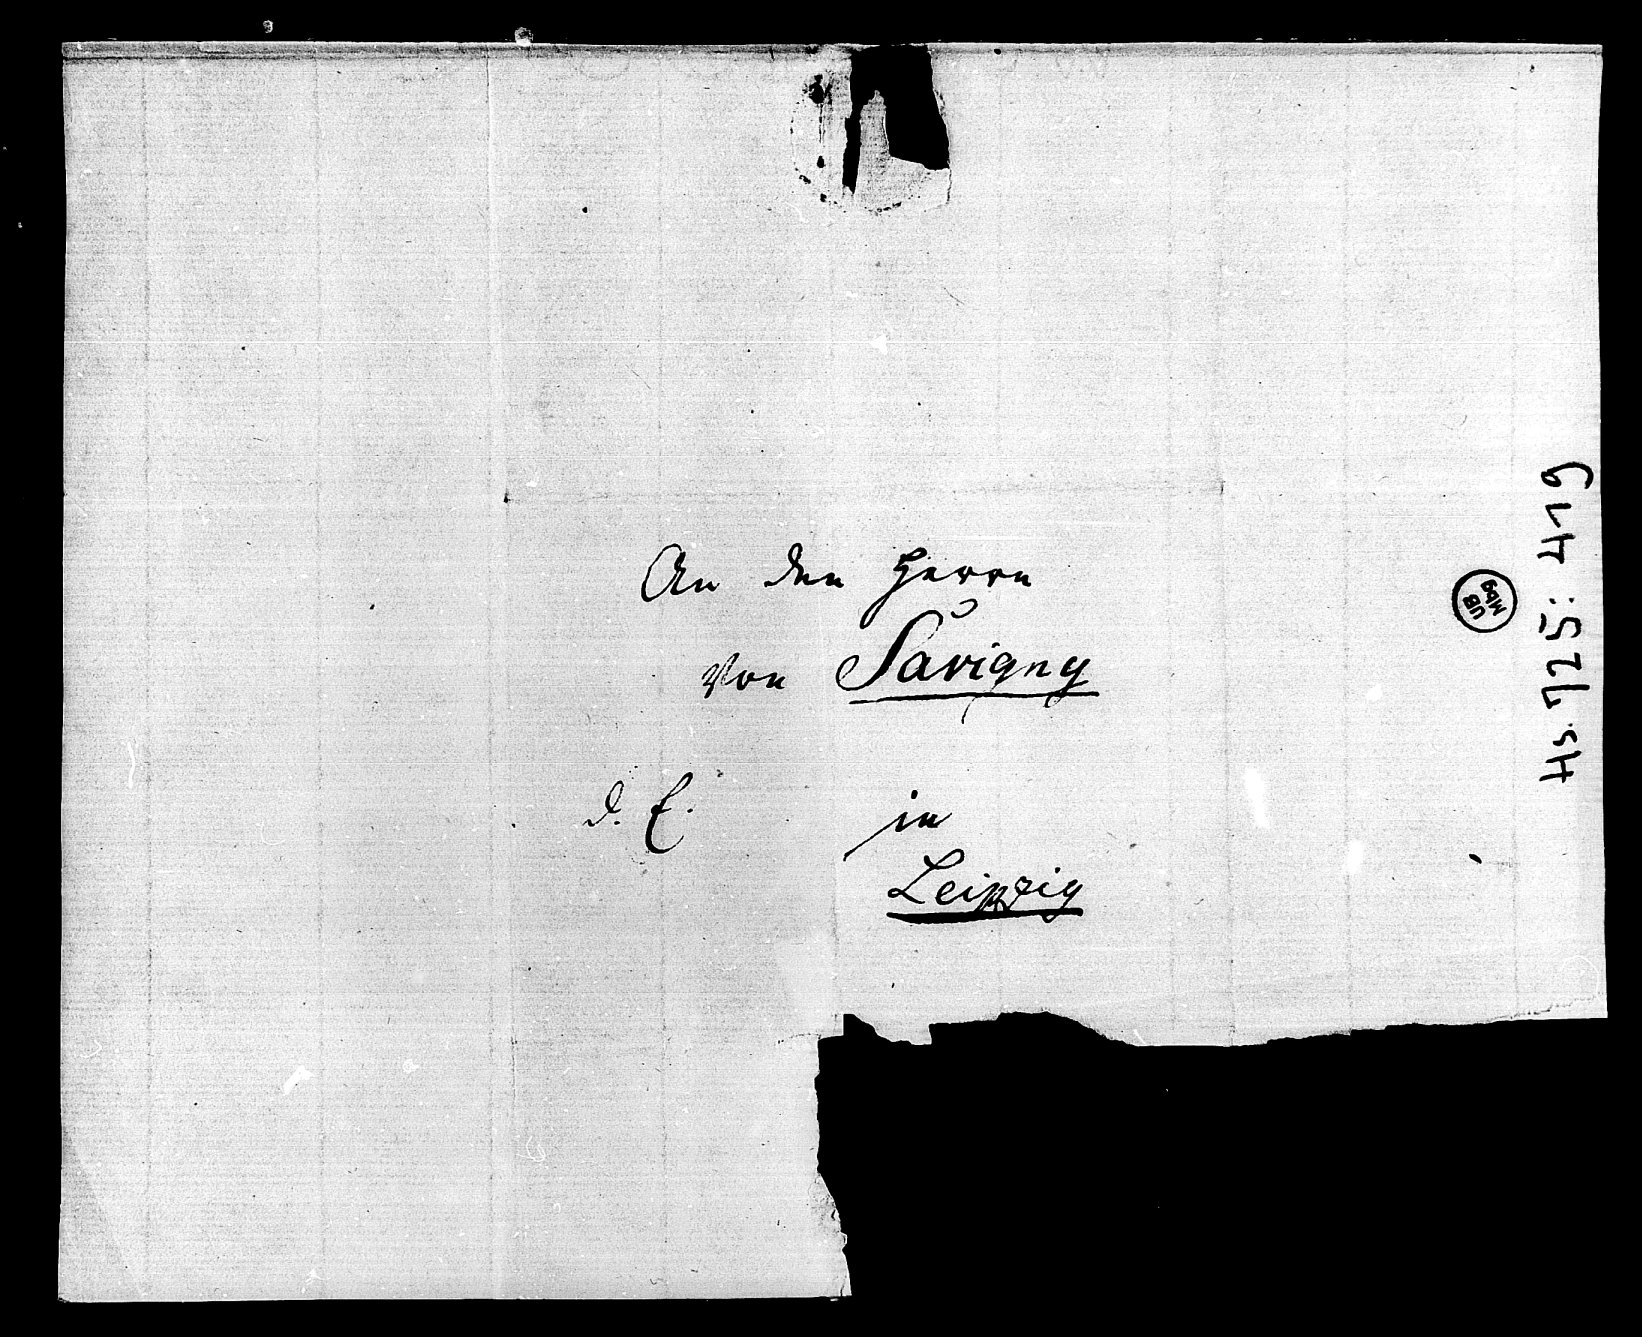 An den Herrn
von Savigny
d. E.
in
Leipzig
Hs. 725: 419
UB
Mbg